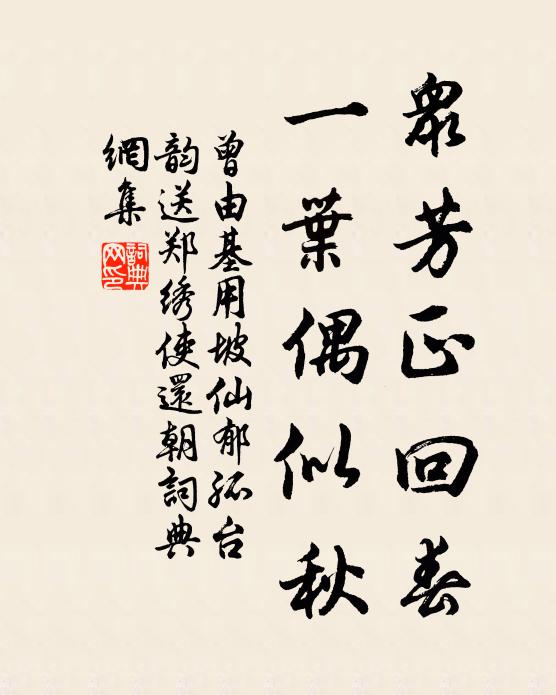 眾芳正回春
一葉偶似秋
曾由基用坡仙郁孤台
韵送郑绣使還朝詞典
網集
詞典網印